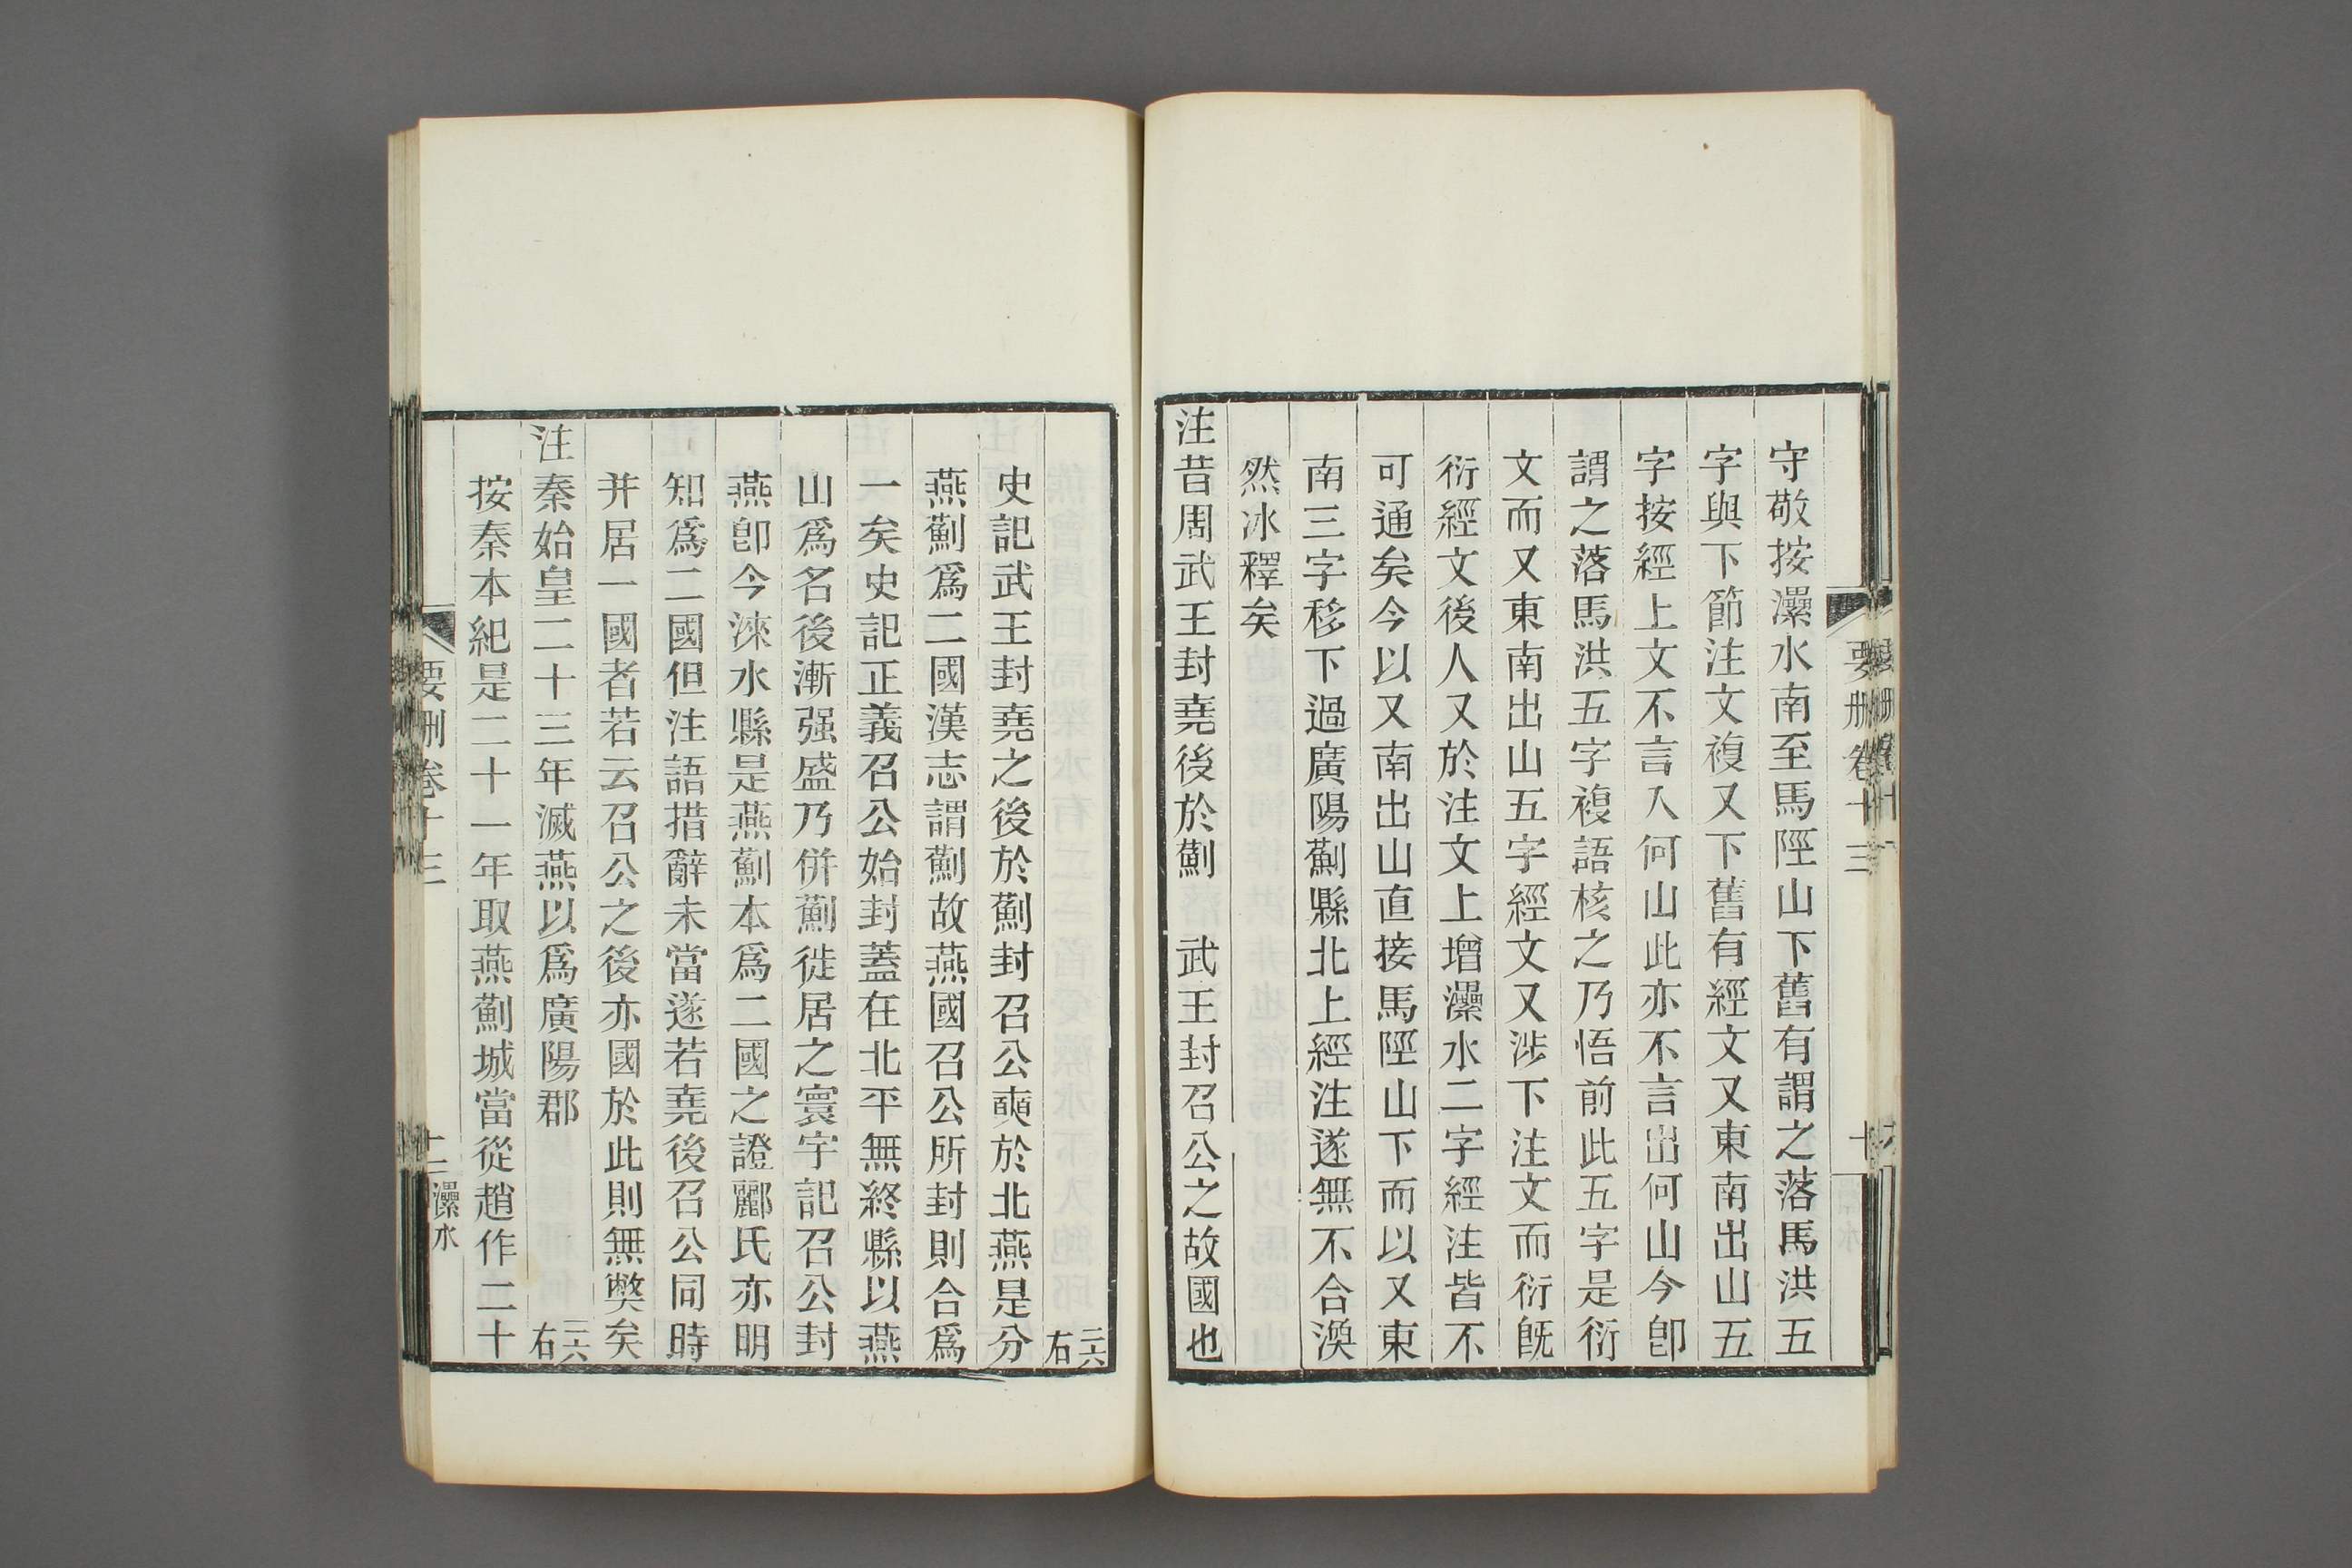 要刪卷十三
守敬按㶟水南至馬陘山下舊有謂之落馬洪五
字與下節注文複又下舊有經文又東南出山五
字按經上文不言入何山此亦不言出何山今卽
謂之落馬洪五字複語核之乃悟前此五字是衍
文而又東南出山五字經文又涉下注文而衍旣
衍經文後人又於注文上增㶟水二字經注皆不
可通矣今以又南出山直接馬陘山下而以又東
南三字移下過廣陽薊縣北上經注遂無不合渙
然冰釋矣
注昔周武王封堯後於薊 武王封召公之故國也
二六右
史記武王封堯之後於薊封召公奭於北燕是分
燕薊爲二國漢志謂薊故燕國召公所封則合爲
一矣史記正義召公始封蓋在北平無終縣以燕
山爲名後漸强盛乃併薊徙居之寰宇記召公封
燕卽今淶水縣是燕薊本爲二國之證酈氏亦明
知爲二國但注語措辭未當遂若堯後召公同時
并居一國者若云召公之後亦國於此則無弊矣
注秦始皇二十三年滅燕以爲廣陽郡 二六右
按秦本紀是二十一年取燕薊城當從趙作二十
要刪卷十三 十二 㶟水